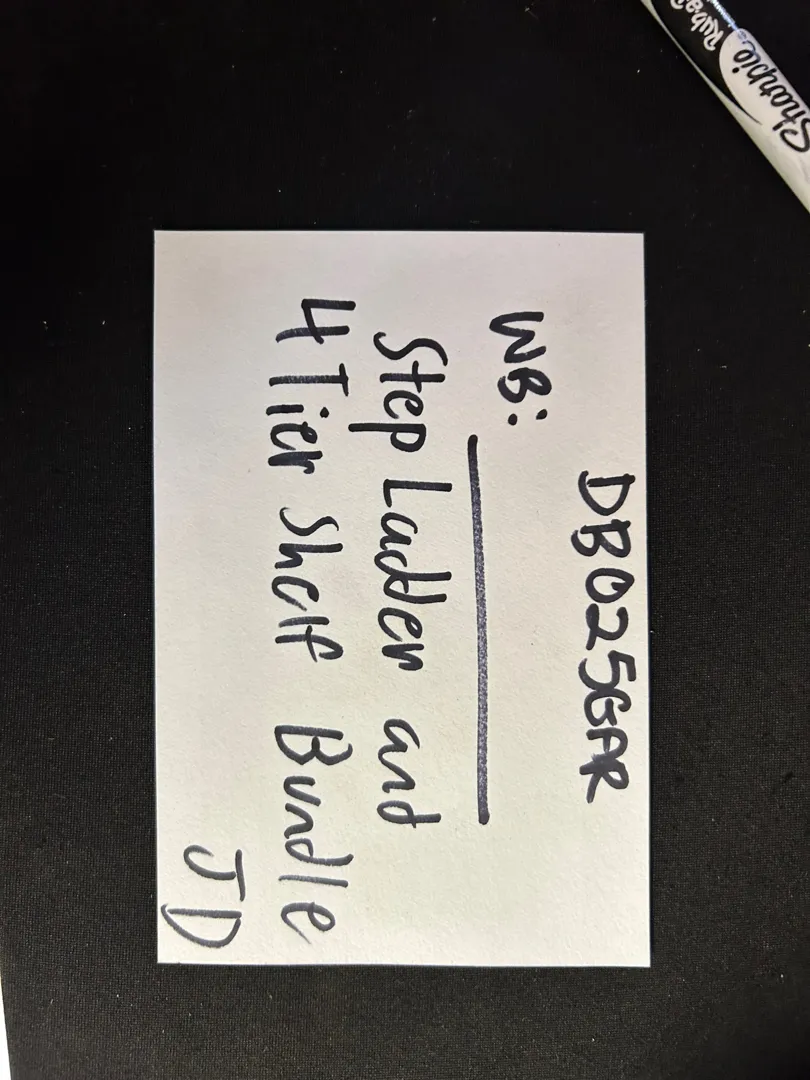 DB025GAR
WB:
Step Ladder and
4 Tier Shelf Bundle
JD
Sharpie